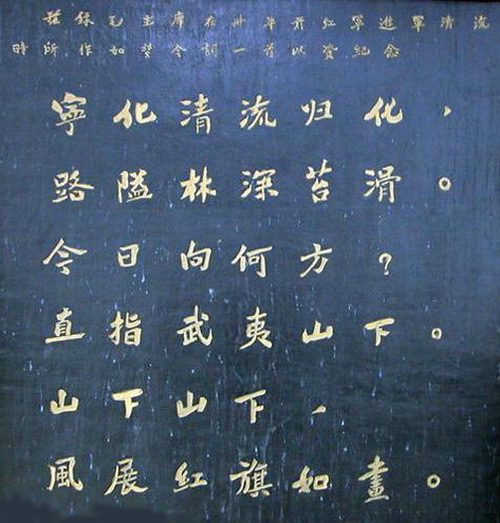 茲錄毛主席在卅年前红軍進軍清流
時所作如夢令詞一首以資紀念
寧化清流归化，
路隘林深苔滑。
今日向何方？
直指武夷山下。
山下山下，
風展红旗如畫。